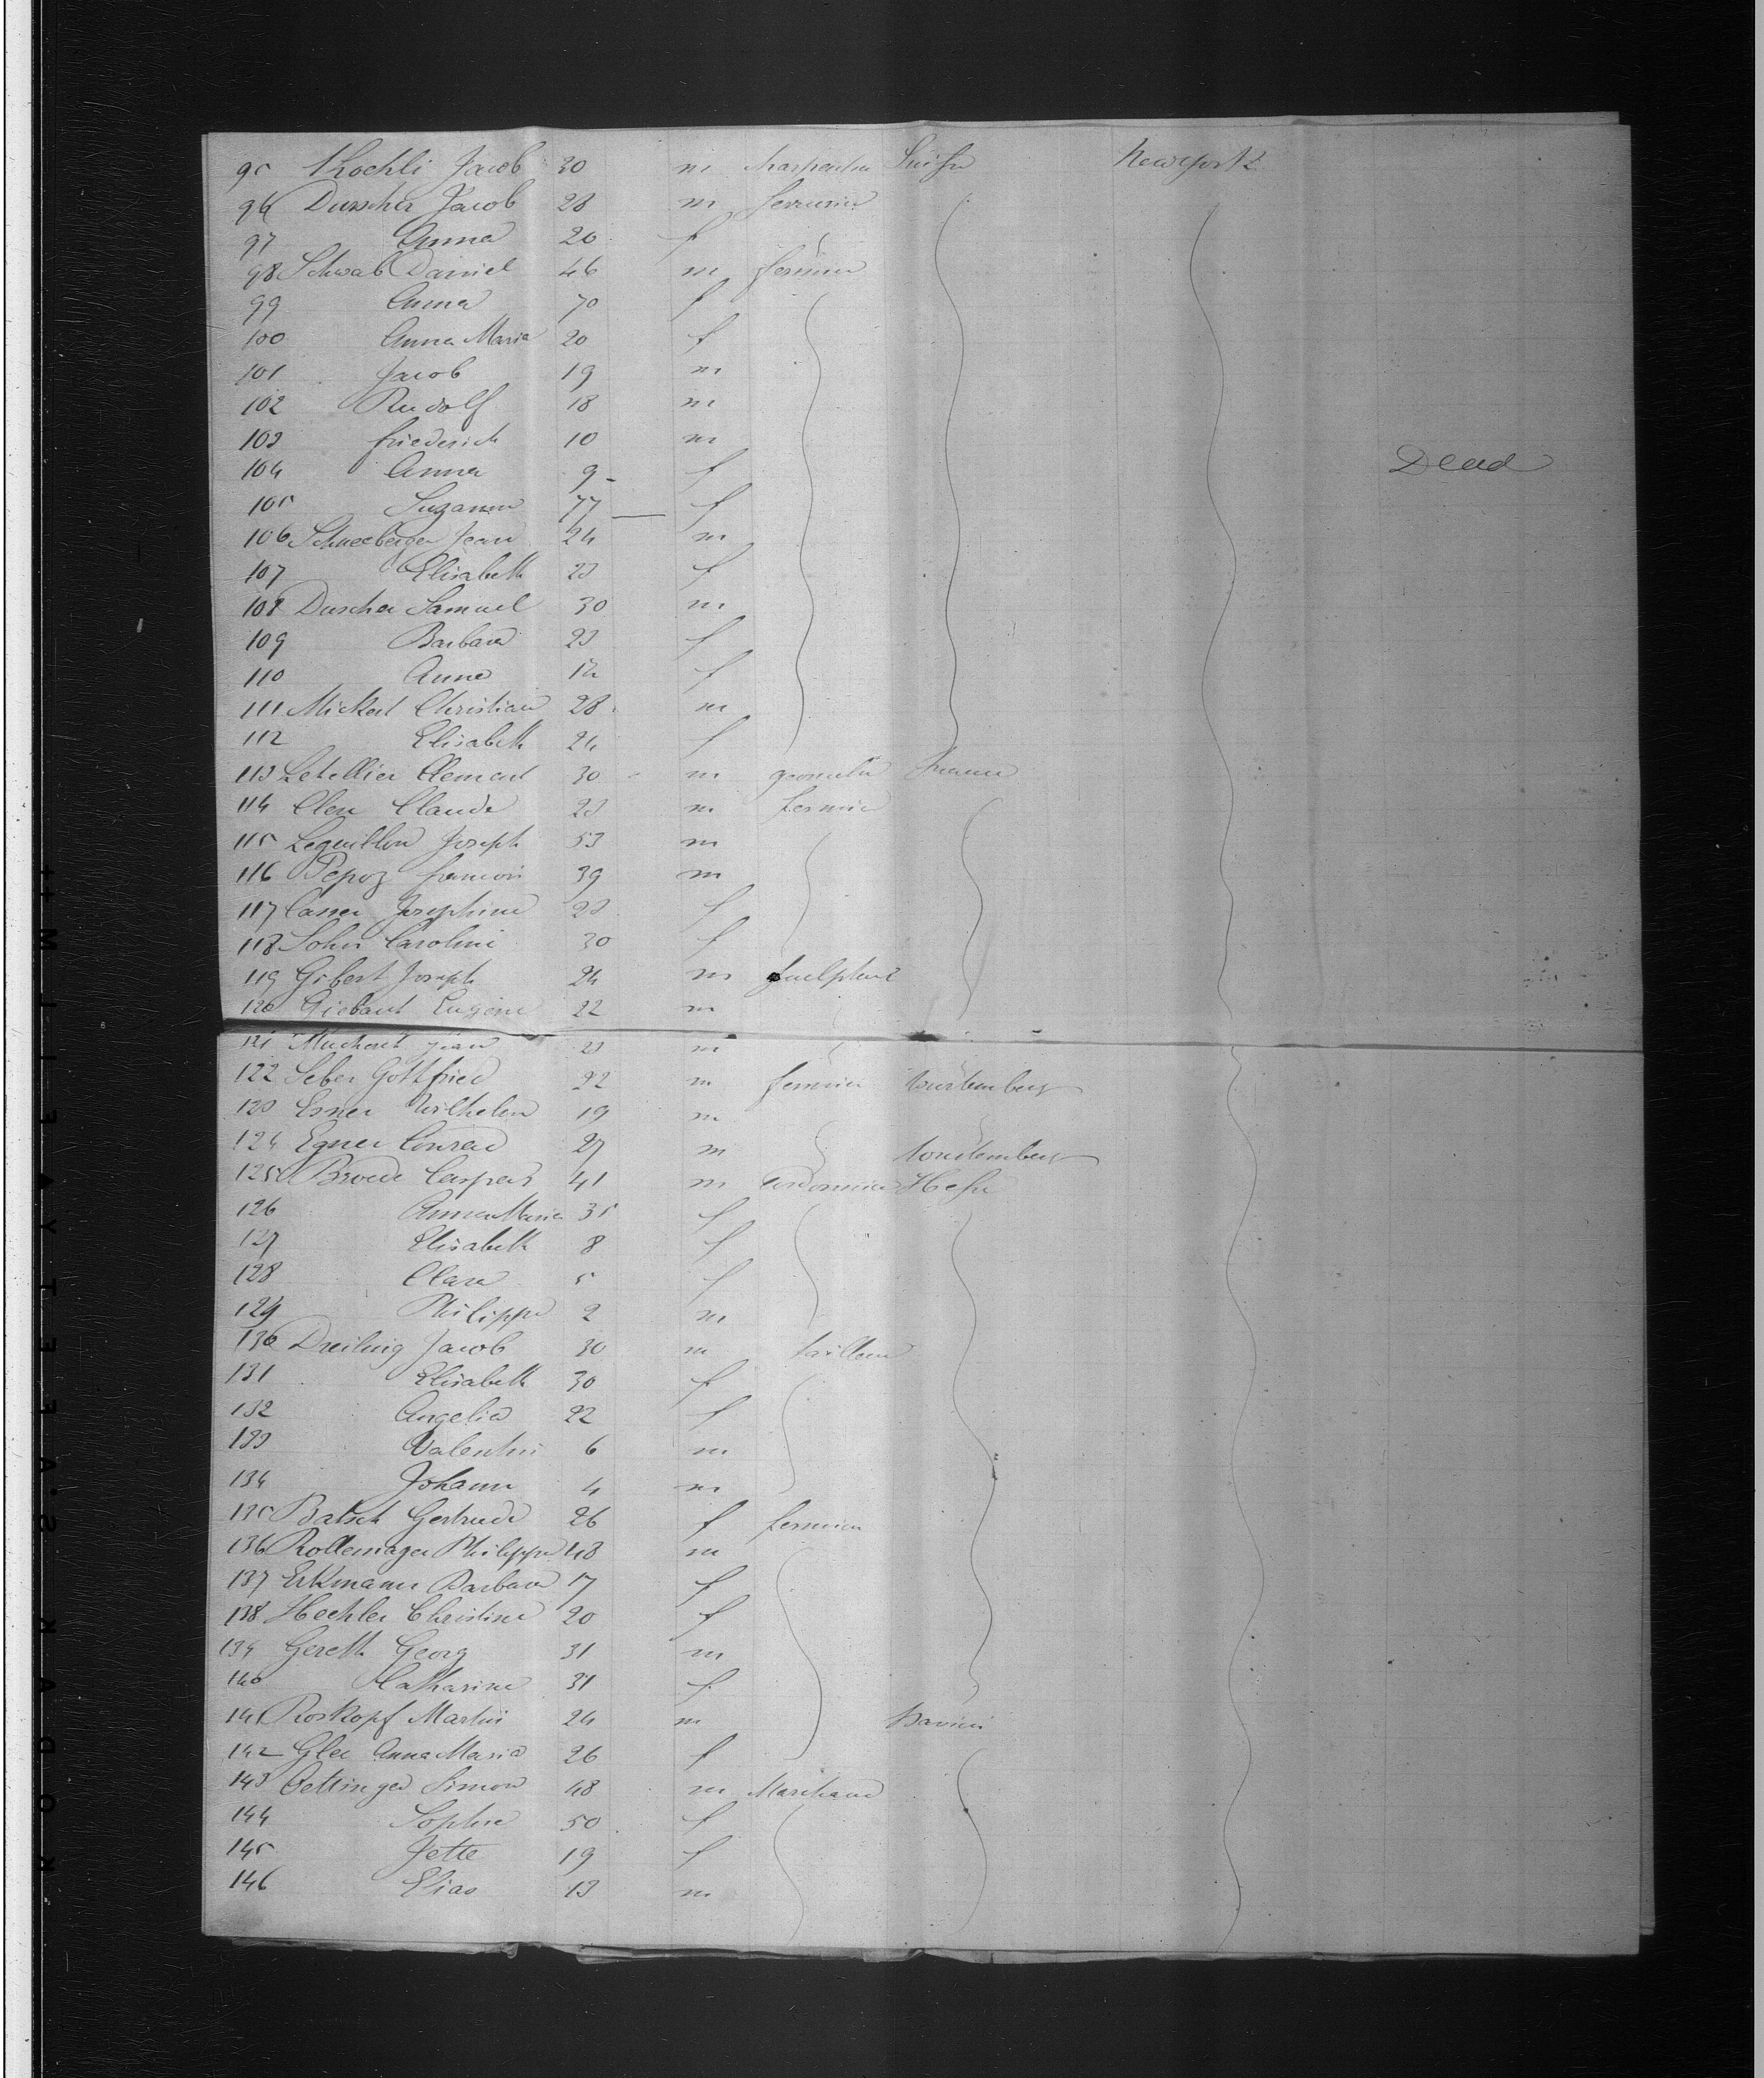 95 Kochli Jacob 30 m charpentier Suisse Newyork
96 Durscher Jacob 28 m serrurier
97 Anna 20 f
98 Schwab Daniel 46 m fermier
99 Anna 70 f
100 Anna Maria 20 f
101 Jacob 19 m
102 Rudolf 18 m
103 friederich 10 m
104 Anna 9 f Dead
105 Suzanna 77 f
106 Schneeberger Jean 24 m
107 Elisabeth 23 f
108 Duscher Samuel 30 m
109 Barbara 23 f
110 Anna f
111 Mickel Christian 28 m
112 Elisabeth 24 f
113 Letellier Clement 30 m geometre france
114 Clere Claude 23 m fermier
115 Leguillon Joseph 53 m
116 Pepoz francois 39 m
117 Josephine 23 f
118 Sohn Caroline 30 f
119 Gibert Joseph 24 m sculpteur
120 Giebaut Eugène 22 m
121 Jean 23 m
122 Seber Gottfried 22 m fermier Wurtemberg
123 Esner Wilhelm 19 m
124 Egner Conrad 27 m Wurtemberg
125 Broede Caspar 41 m cordonnier Hesse
126 Anna Maria 35 f
127 Elisabeth 8 f
128 Clara 5 f
129 Philippe 2 m
130 Dreiling Jacob 30 m tailleur
131 Elisabeth 30 f
132 Angelia 22 f
133 Valentin 6 m
134 Johann 4 m
135 Balsch Gertrude 26 f fermier
136 Rollemager Philippe 48 m
137 Erkmann Barbara 17 f
138 Hechler Christine 20 f
139 Gereth Georg 31 m
140 Catharina 31 f
141 Roskopf Martin 24 m Baviere
142 Glee Anna Maria 26 f
143 Oettinger Simon 48 m Marchand
144 Sophie 50 f
145 Jette 19 f
146 Elias 13 m